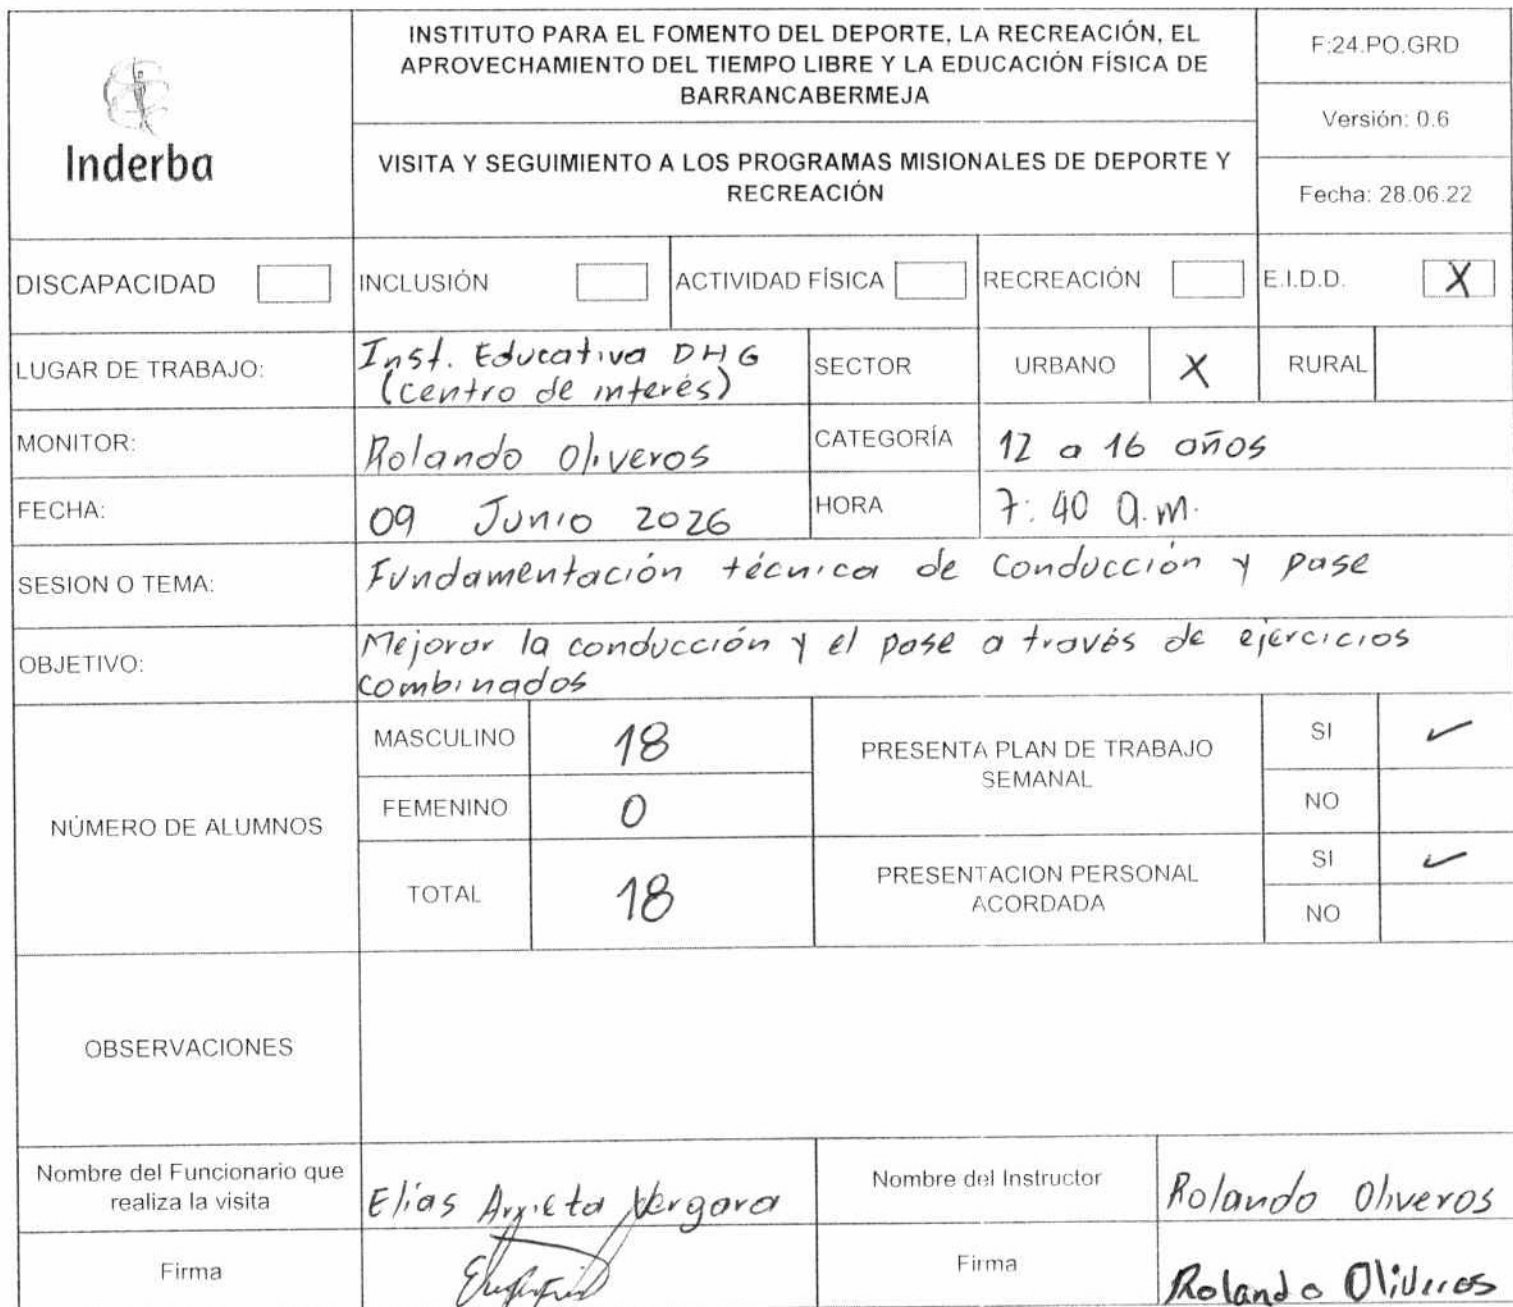 Inderba
INSTITUTO PARA EL FOMENTO DEL DEPORTE, LA RECREACIÓN, EL
APROVECHAMIENTO DEL TIEMPO LIBRE Y LA EDUCACIÓN FÍSICA DE
BARRANCABERMEJA
VISITA Y SEGUIMIENTO A LOS PROGRAMAS MISIONALES DE DEPORTE Y
RECREACIÓN
F:24.PO.GRD
Versión: 0.6
Fecha: 28.06.22
DISCAPACIDAD INCLUSIÓN ACTIVIDAD FÍSICA RECREACIÓN E.I.D.D. X
LUGAR DE TRABAJO: Inst. Educativa DHG
(Centro de interés)
SECTOR URBANO X RURAL
MONITOR: Rolando Oliveros CATEGORÍA 12 a 16 años
FECHA: 09 Junio 2026 HORA 7:40 a.m.
SESION O TEMA: Fundamentación técnica de Conducción y pase
OBJETIVO: Mejorar la conducción y el pase a través de ejercicios
combinados
NÚMERO DE ALUMNOS
MASCULINO 18
FEMENINO 0
TOTAL 18
PRESENTA PLAN DE TRABAJO
SEMANAL
SI ✓
NO
PRESENTACION PERSONAL
ACORDADA
SI ✓
NO
OBSERVACIONES
Nombre del Funcionario que
realiza la visita
Elías Arrieta Vergara
Nombre del Instructor Rolando Oliveros
Firma
Firma Rolando Oliveros